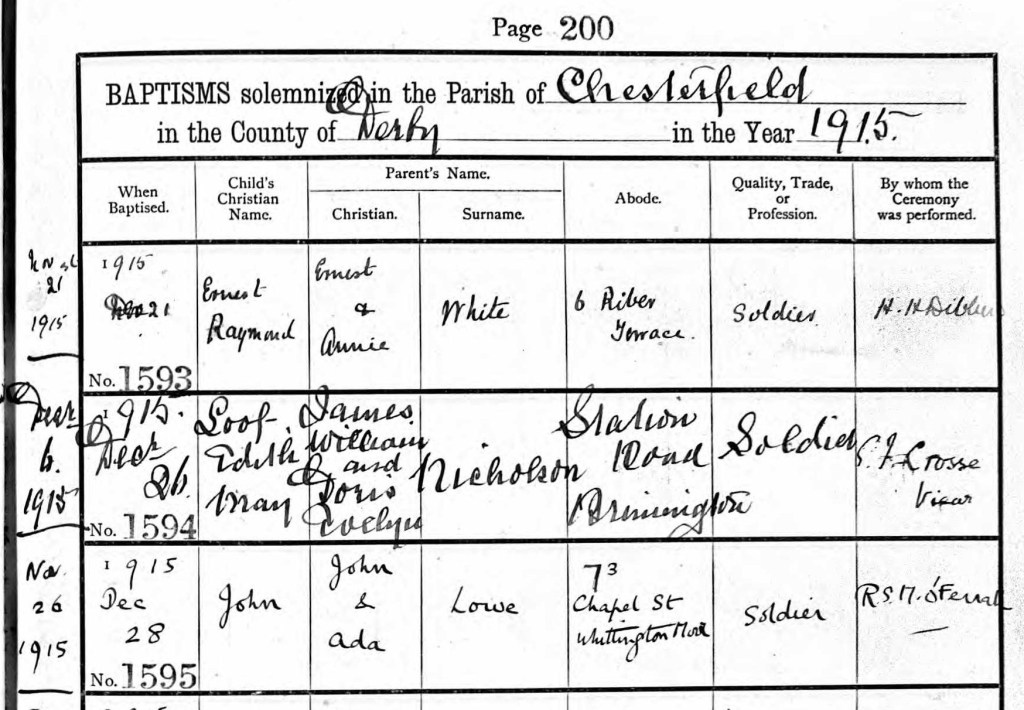 Page 200
BAPTISMS solemnized in the Parish of Chesterfield
in the County of Derby in the Year 1915.
When Baptised.
Child's Christian Name.
Parent's Name.
Christian.
Surname.
Abode.
Quality, Trade, or Profession.
By whom the Ceremony was performed.
21
1915
1915
21
No. 1593
Ernest
Raymond
Ernest
&
Annie
White
6 Riber
Terrace.
Soldier
H. H.
Decr
6.
1915
1915.
Decr
26
No. 1594
Edith
May
James
William
and
Doris
Evelyn
Nicholson
Station
Road
Brimington
Soldier
Crosse
Vicar
Nov.
26
1915
1915
Dec
28
No. 1595
John
John
&
Ada
Lowe
73
Chapel St
Whittington Moor
Soldier
R.S.M. O'Ferrall